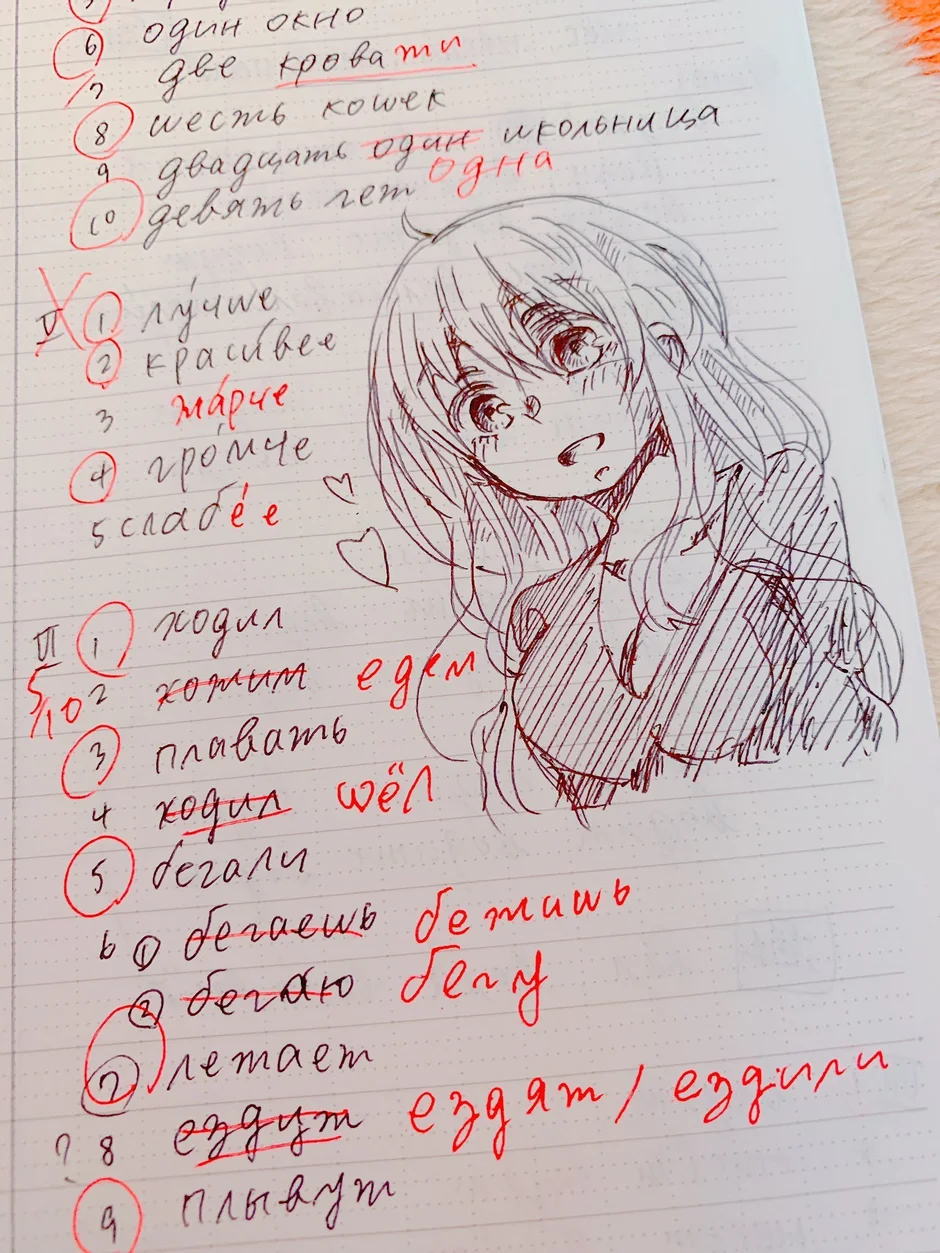 6 один окно
7 две кровати
8 шесть кошек
9 двадцать один школьница
одна
10 девять лет
V 1 лу́чше
2 краси́вее
3 жа́рче
4 гро́мче
5 слабе́е
VI 1 ходил
5/10
2 хожим едем
3 плавать
4 ходил шёл
5 бегали
6 ① бегаешь бежишь
② бегаю бегу
7 летает
? 8 ездут ездят / ездили
9 плывут